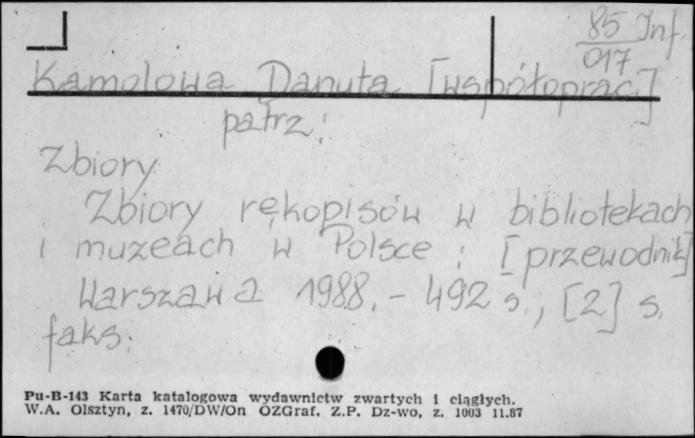 85 Inf.
017
Kamolowa Danuta [współoprac.]
patrz:
Zbiory
Zbiory rękopisów w bibliotekach
i muzeach w Polsce : [przewodnik]
Warszawa 1988. - 492 s., [2] s.
faks.
Pu-B-143 Karta katalogowa wydawnictw zwartych i ciągłych.
W.A. Olsztyn, z. 1470/DW/On OZGraf. Z.P. Dz-wo, z. 1003 11.87